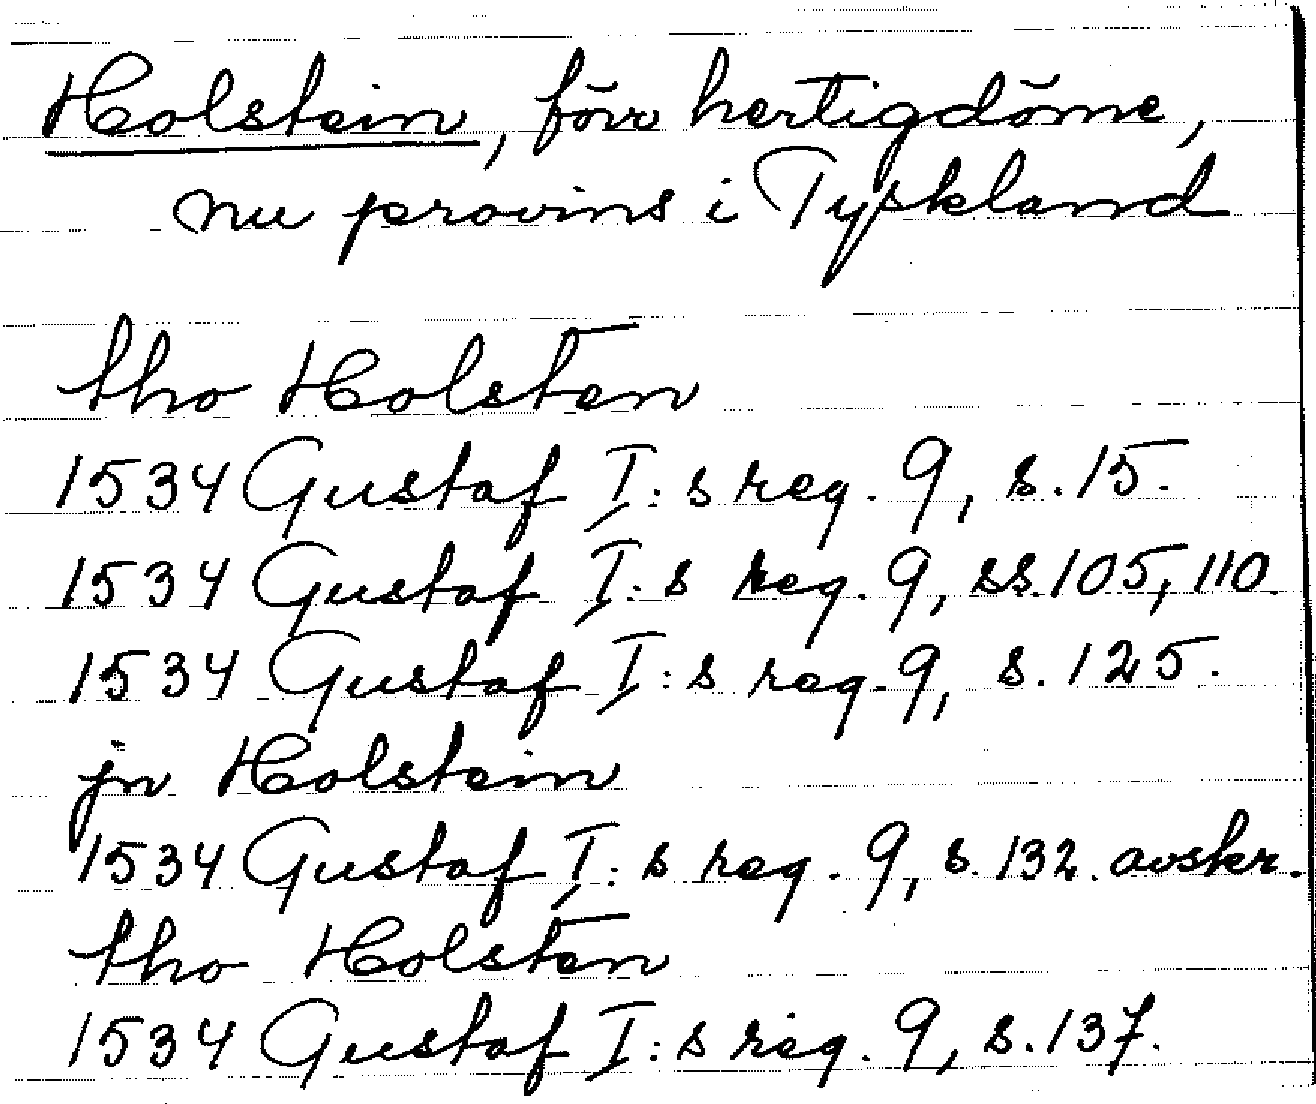 Holstein, förr hertigdöme,
nu provins i Tyskland
tho Holsten
1534 Gustaf I:s reg. 9, s. 15.
1534 Gustaf I:s reg. 9, ss. 105, 110.
1534 Gustaf I:s reg. 9, s. 125.
jn Holstein
1534 Gustaf I:s reg. 9, s. 132. avskr.
tho Holsten
1534 Gustaf I:s reg. 9, s. 137.